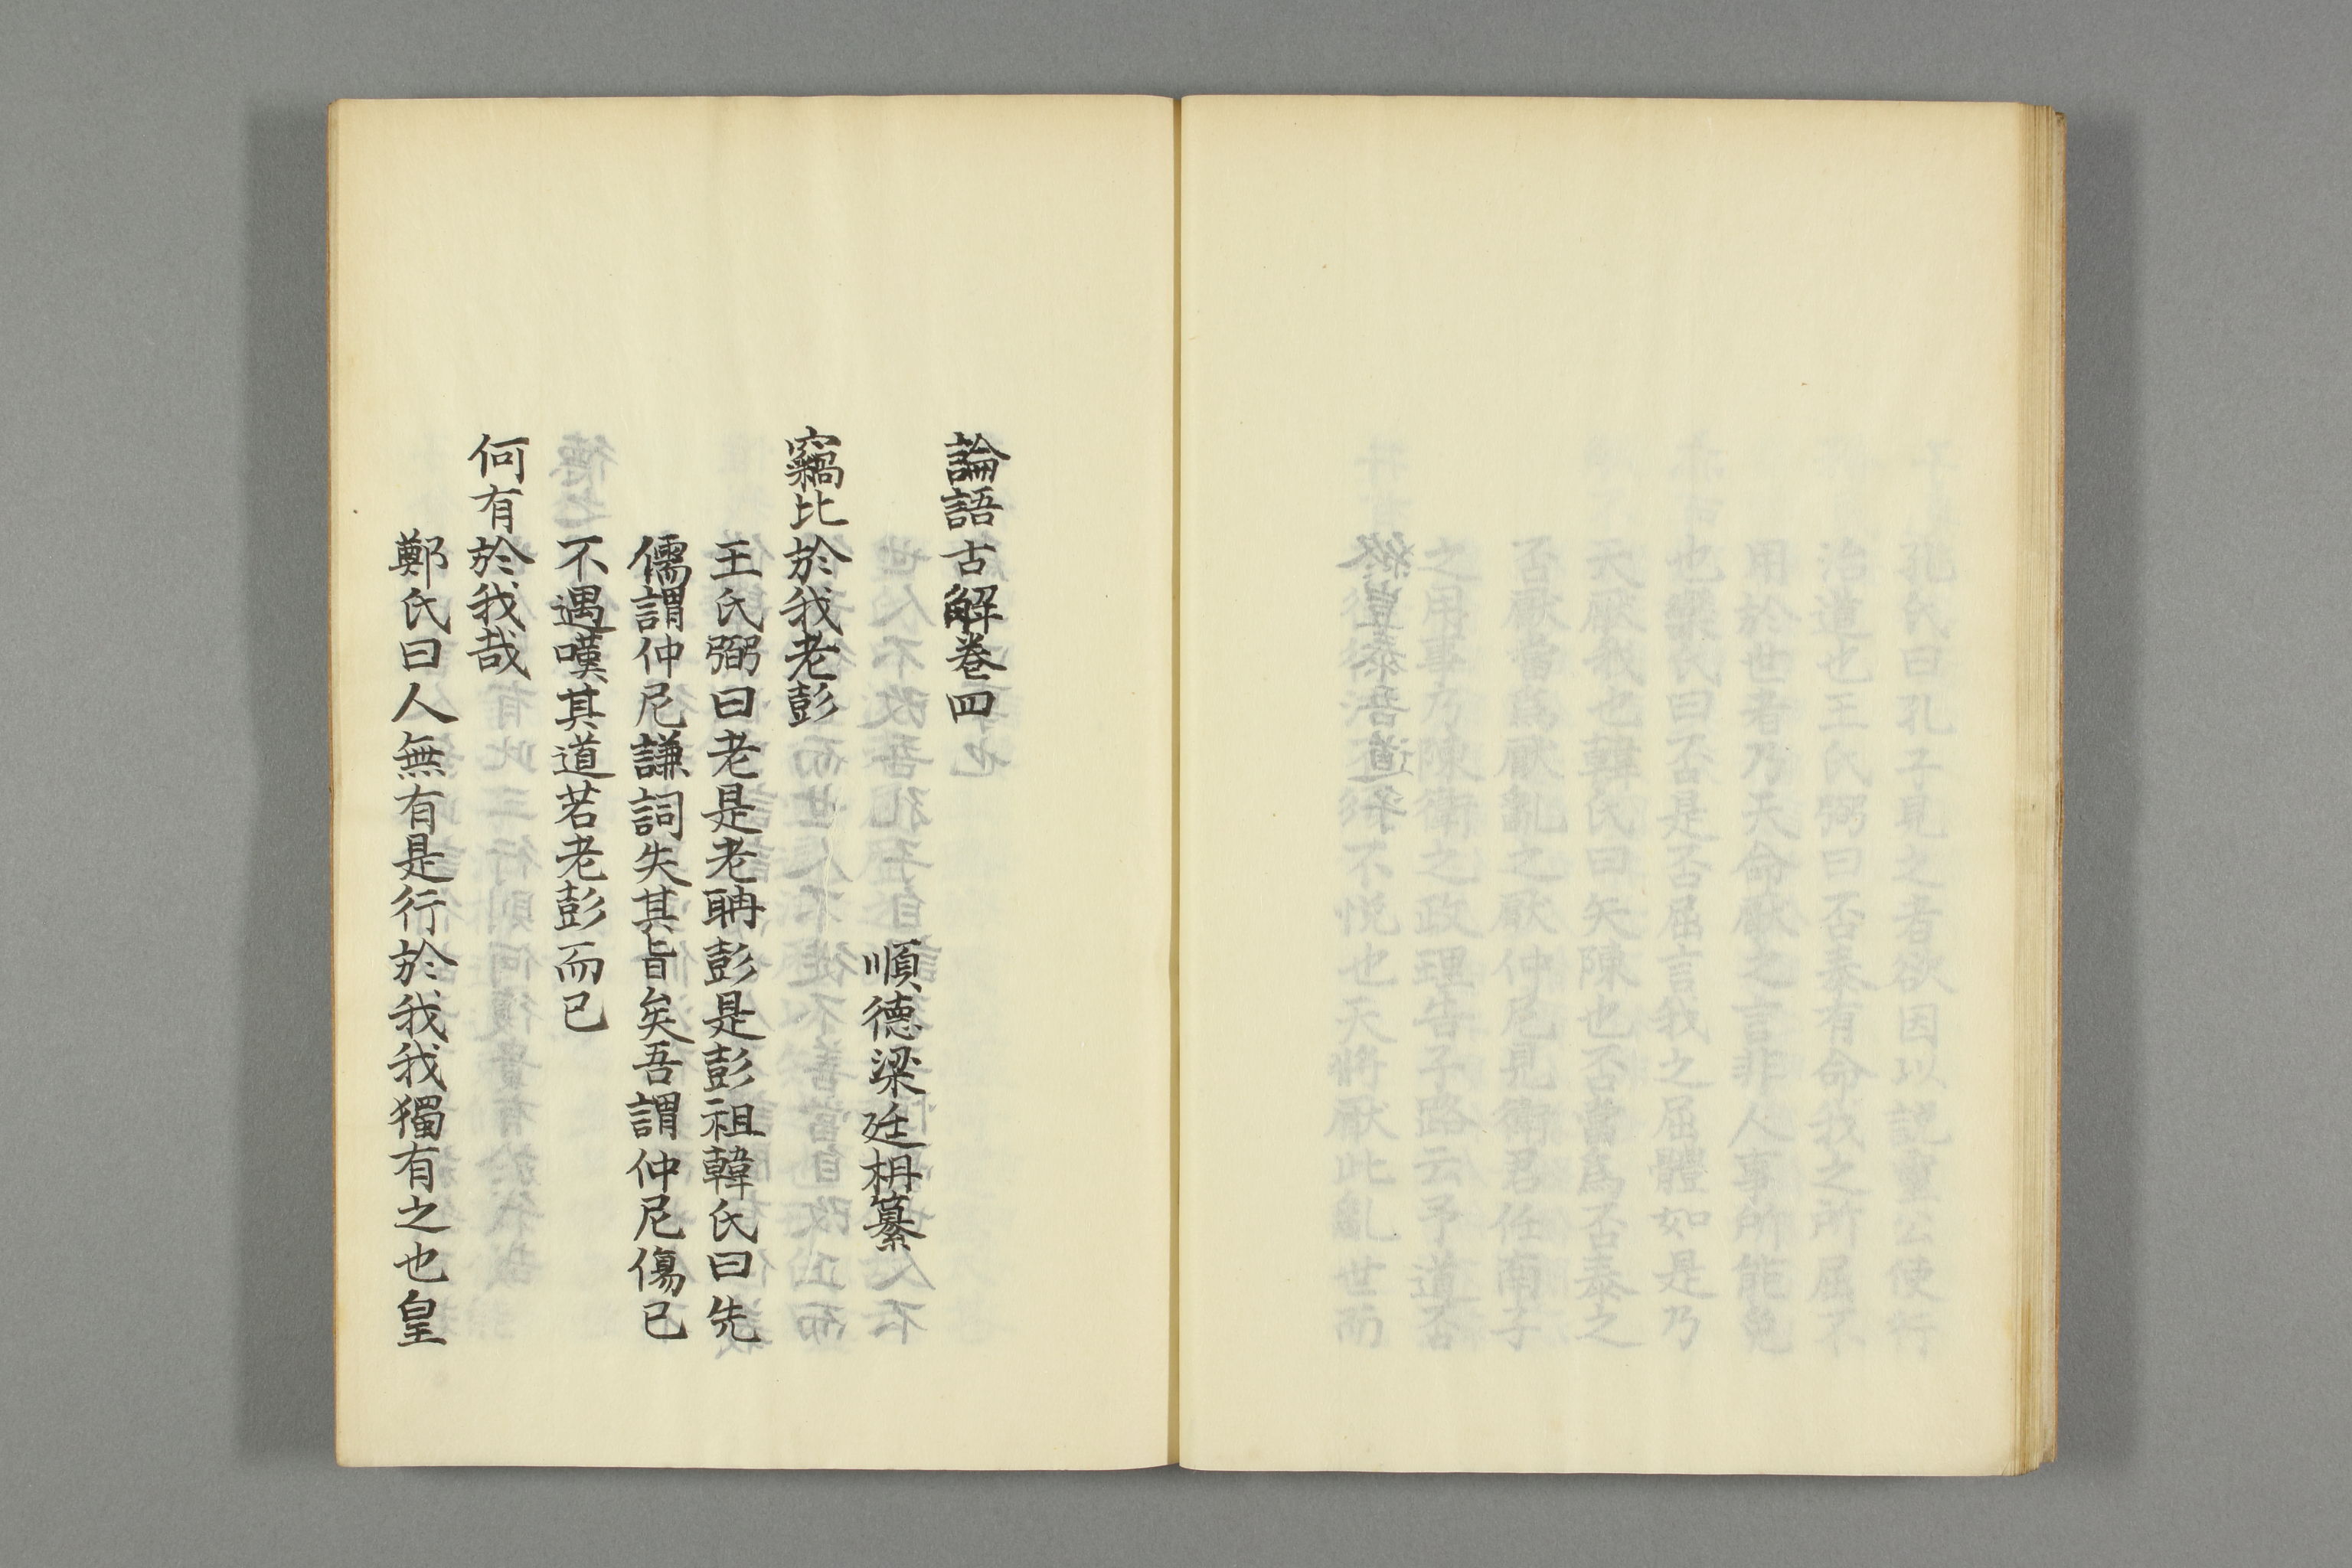 論語古解卷四
順德梁廷枏纂
竊比於我老彭
王氏弼曰老是老聃彭是彭祖韓氏曰先
儒謂仲尼謙詞失其旨矣吾謂仲尼傷已
不遇嘆其道若老彭而已
何有於我哉
鄭氏曰人無有是行於我我獨有之也皇